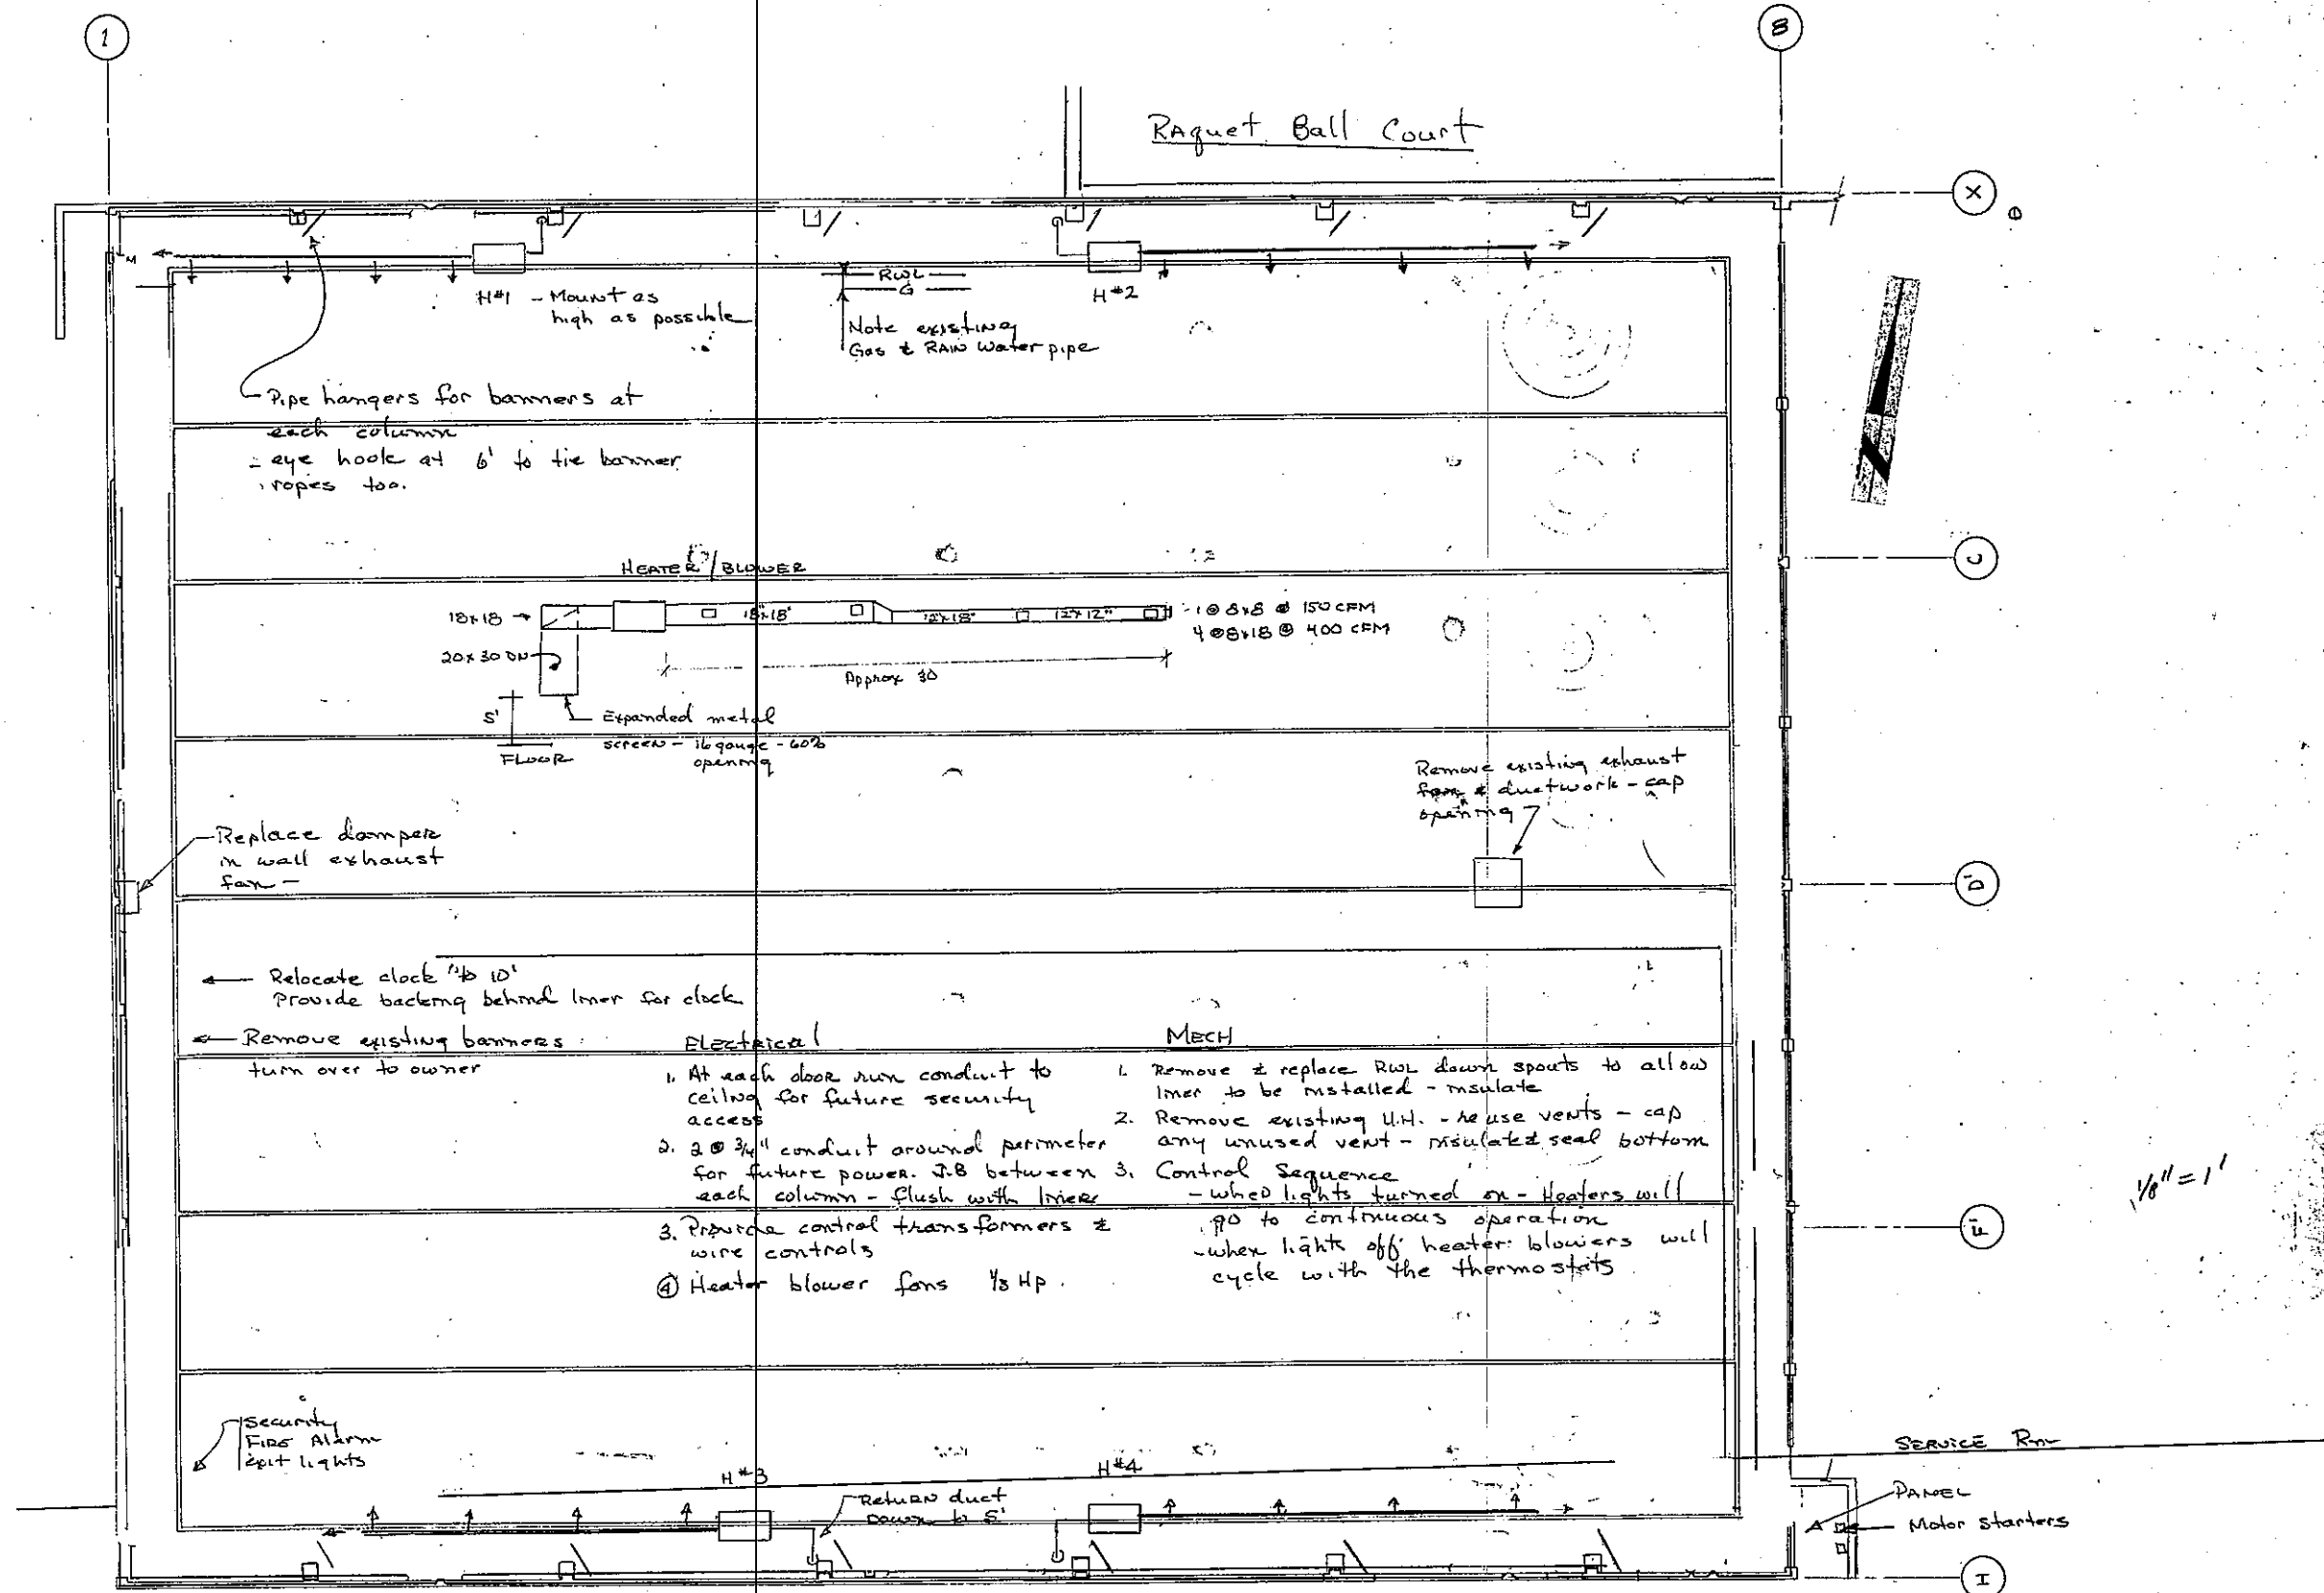 1
8
RAquet Ball Court
X
M
H#1 - Mount as
high as possible
RWL
G
H#2
Note existing
Gas & RAIN Water pipe
Pipe hangers for banners at
each column
- eye hook at 6' to tie banner
ropes too.
C
HEATER/BLOWER
18x18
18"x18"
12"x18"
12"x12"
1 @ 8x8 @ 150 CFM
4 @ 8x18 @ 400 CFM
20x30 DN
Approx 30
5'
Expanded metal
screen - 16 gauge - 60%
opening
FLOOR
Remove existing exhaust
fan & ductwork - cap
opening
Replace damper
in wall exhaust
fan -
D
Relocate clock to 10'
Provide backing behind liner for clock
Remove existing banners
turn over to owner
Electrical
1. At each door run conduit to
ceiling for future security
access
2. 2 @ 3/4" conduit around perimeter
for future power. J.B between
each column - flush with liner
3. Provide control transformers &
wire controls
4 Heater blower fans 1/3 Hp.
MECH
1. Remove & replace RWL down spouts to allow
liner to be installed - insulate
2. Remove existing U.H. - re use vents - cap
any unused vent - insulate & seal bottom
3. Control Sequence
- when lights turned on - Heaters will
go to continuous operation
- when lights off heater blowers will
cycle with the thermostats
1/8" = 1'
Security
FIRE Alarm
Exit lights
H#3
H#4
Return duct
Down to 5'
SERVICE Rm
PANEL
Motor starters
I